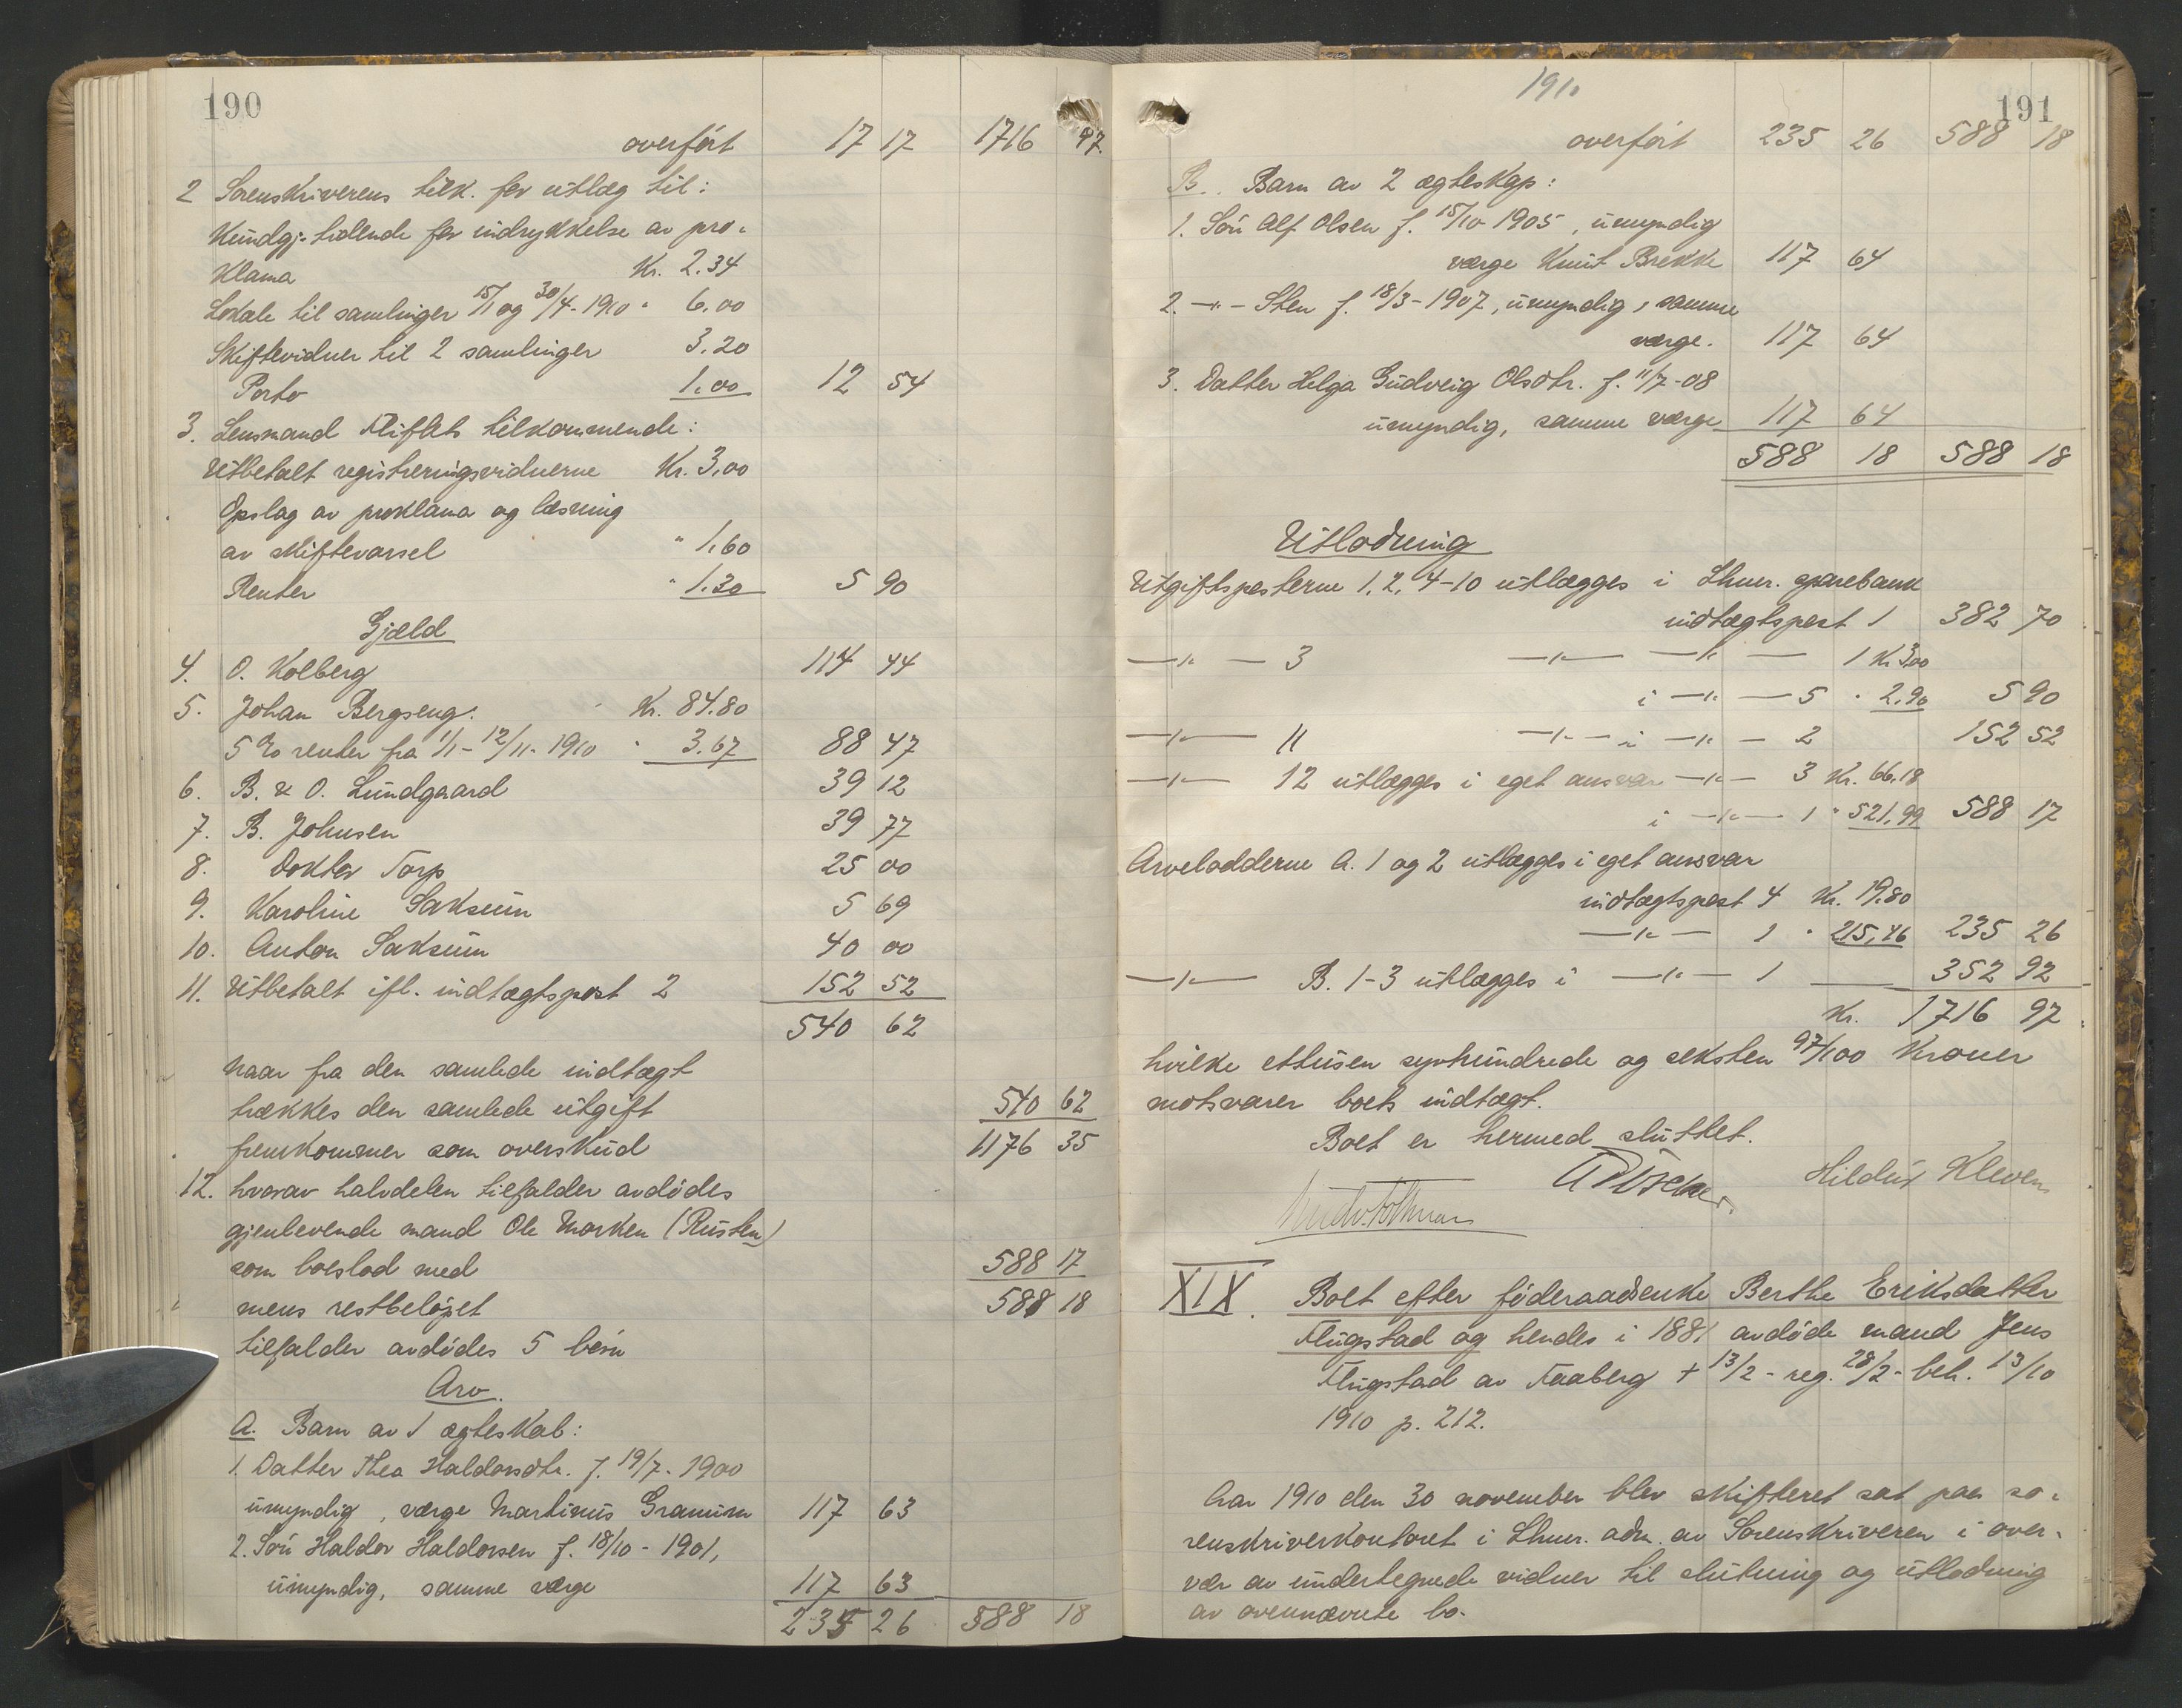 190
overført 17 17 1716 97
2 Sorenskriverens tilk. for utlæg til:
Kundgj. tidende for indrykkelse av pro-
klama Kr. 2.34
Lokale til samlinger 15/1 og 30/4-1910 " 6.00
Skiftevidner til 2 samlinger 3.20
Porto 1.00 12 54
3. Lensmand Fliflets tilkommende:
Utbetalt registreringsvidnerne Kr. 3,00
Opslag av proklama og læsning
av skiftevarsel " 1.60
Renter " 1.30 5 90
Gjæld
4. O. Kolberg 114 44
5. Johan Bergseng. Kr. 84.80
5 % renter fra 1/1-12/11-1910 " 3.67 88 47
6. B. & O. Lundgaard 39 12
7. B. Johnsen 39 77
8. Doktor Torp 25 00
9. Karoline Saksum 5 69
10. Anton Saksum 40 00
11. Utbetalt ifl. indtægtspost 2 152 52
540 62
Naar fra den samlede indtægt
trækkes den samlede utgift 540 62
fremkommer som overskud 1176 35
12. hvorav halvdelen tilfalder avdødes
gjenlevende mand Ole Morken (Rusten)
som boeslod med 588 17
mens restbeløpet 588 18
tilfalder avdødes 5 børn
Arv.
A. Barn av 1 ægteskab:
1. Datter Thea Haldorsdtr. f. 19/7-1900
umyndig, værge Martinus Granum 117 63
2. Søn Haldor Haldorsen f. 18/10-1901,
umyndig, samme værge 117 63
235 26 588 18
1910
191
overført 235 26 588 18
B. Barn av 2 ægteskap:
1. Søn Alf Olsen f. 15/10 1905, umyndig
værge Knut Brekke 117 64
2. -"- Sten f. 18/3-1907, umyndig, samme
værge. 117 64
3. Datter Helga Gudveig Olsdtr. f. 11/7-08
umyndig, samme værge 117 64
588 18 588 18
Utlodning
Utgiftsposterne 1, 2, 4-10 utlægges i Lhmr. sparebank
indtægtspost 1 382 70
-"- - 3 -"- -"- - 1 Kr 3,00
i -"- - 5 " 2.90 5 90
-"- 11 -"- i -"- - 2 152 52
-"- 12 utlægges i eget ansvar -"- 3 Kr. 66.18
i -"- 1 " 521.99 588 17
Arvelodderne A. 1 og 2 utlægges i eget ansvar
indtægtspost 4 Kr. 19.80
-"- 1 " 215,46 235 26
-"- B. 1-3 utlægges i -"- 1 352 92
Kr. 1716 97
hvilke ettusen syvhundrede og seksten 97/100 Kroner
motsvarer boets indtægt.
Boet er hermed sluttet.
Hildur Kleven
XIX. Boet efter føderaadsenke Berthe Eriksdatter
Flugstad og hendes i 1881 avdøde mand Jens
Flugstad av Faaberg + 13/2 - reg. 28/2 - beh. 13/10
1910 p. 212.
Aar 1910 den 30 november blev skifteret sat paa so-
renskriverkontoret i Lhmr. adm. av Sorenskriveren i over-
vær av undertegnede vidner til slutning og utlodning
av ovennævnte bo.